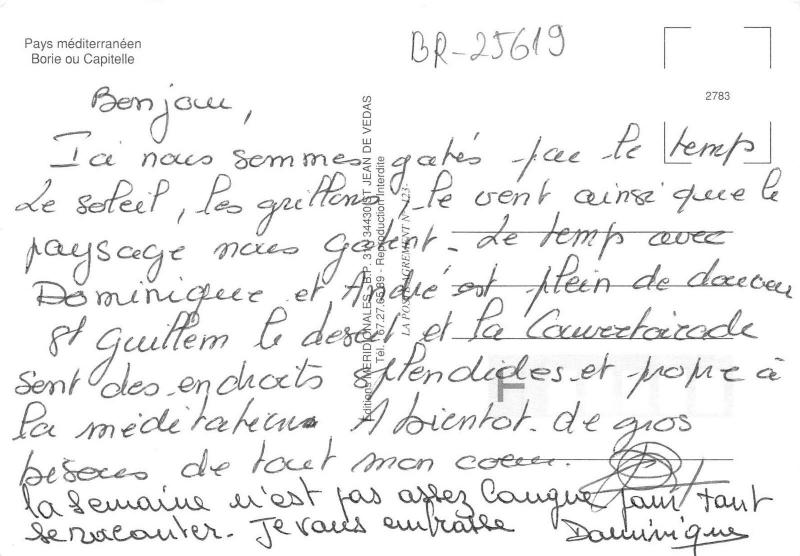 Pays méditerranéen
Borie ou Capitelle
BR-25619
2783
Bonjour,
Ici nous sommes gatés par le temps
Le soleil, les grillons, le vent ainsi que le
paysage nous gatent. Le temps avec
Dominique et André est plein de douceur
St Guillem le desert et la Couvertoirade
sent des endroits splendides et propre à
la méditation A bientot. de gros
besous de tout mon coeur.
la semaine n'est pas assez longue pour tout
se raconter. Je vous embrasse Dominique
Editions MERIDIONALES - B.P. 3 34430 ST JEAN DE VEDAS
Tél. 67.27.63.89 - Reproduction Interdite
LA POSTE AGREMENT N° 123
F